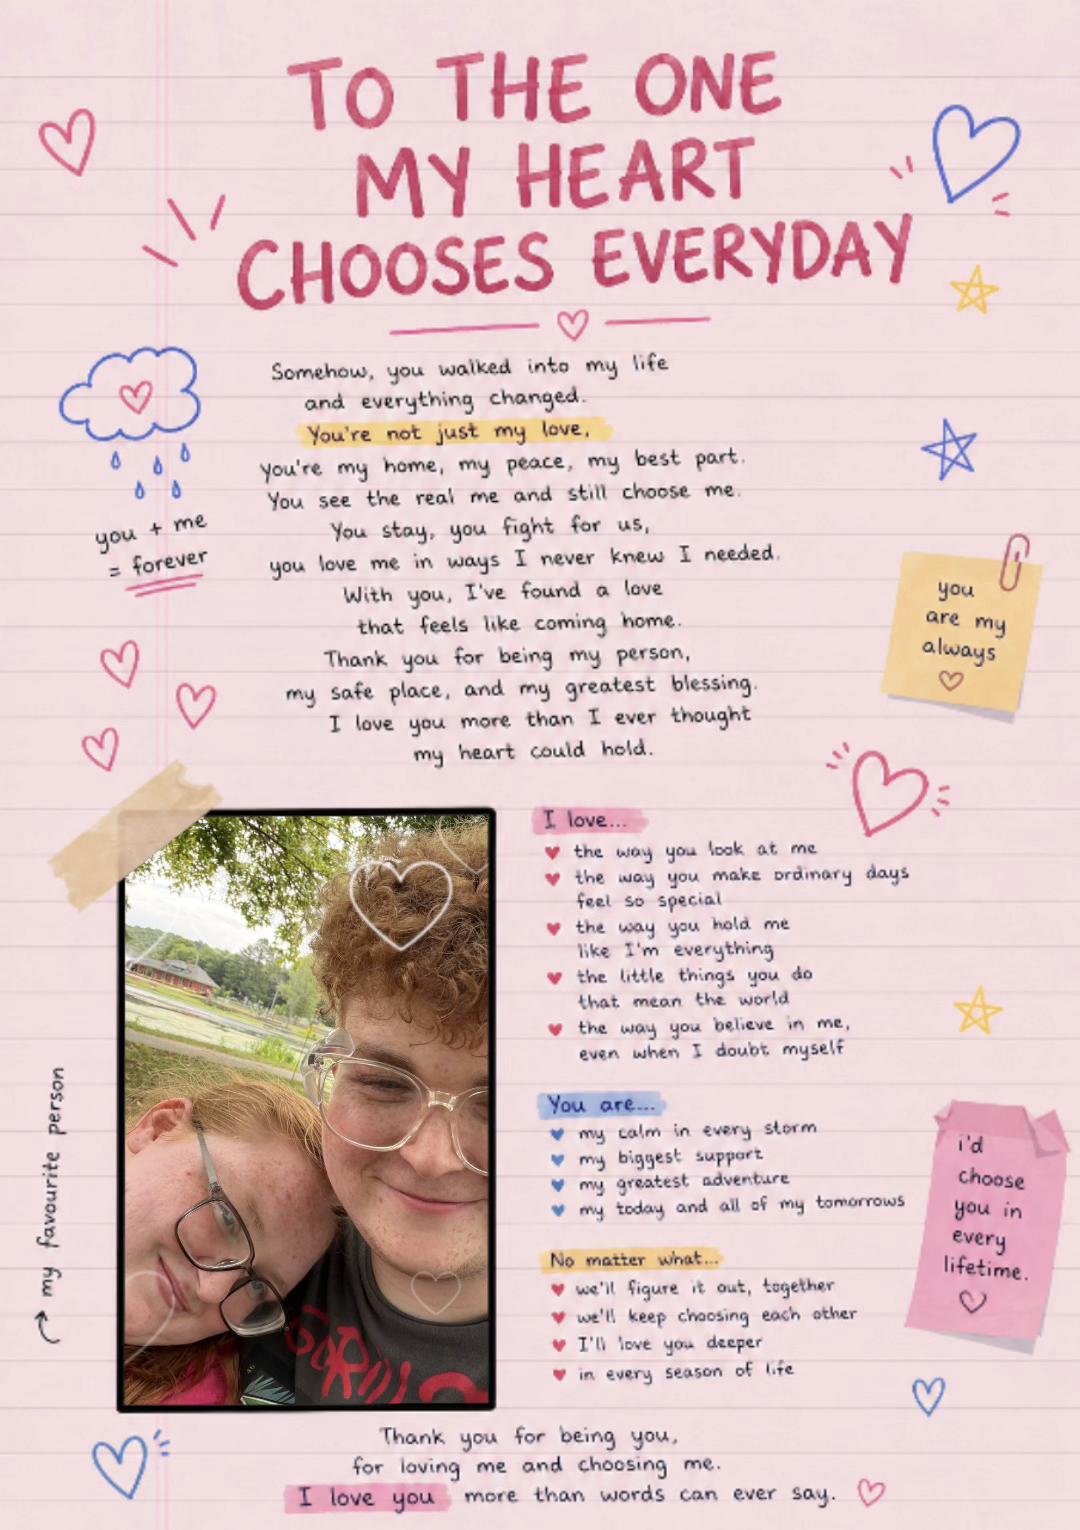 TO THE ONE
MY HEART
CHOOSES EVERYDAY
Somehow, you walked into my life
and everything changed.
You're not just my love,
you're my home, my peace, my best part.
You see the real me and still choose me.
You stay, you fight for us,
you love me in ways I never knew I needed.
With you, I've found a love
that feels like coming home.
Thank you for being my person,
my safe place, and my greatest blessing.
I love you more than I ever thought
my heart could hold.
you + me
= forever
you
are my
always
I love...
the way you look at me
the way you make ordinary days
feel so special
the way you hold me
like I'm everything
the little things you do
that mean the world
the way you believe in me,
even when I doubt myself
You are...
my calm in every storm
my biggest support
my greatest adventure
my today and all of my tomorrows
No matter what...
we'll figure it out, together
we'll keep choosing each other
I'll love you deeper
in every season of life
i'd
choose
you in
every
lifetime.
my favourite person
Thank you for being you,
for loving me and choosing me.
I love you more than words can ever say.